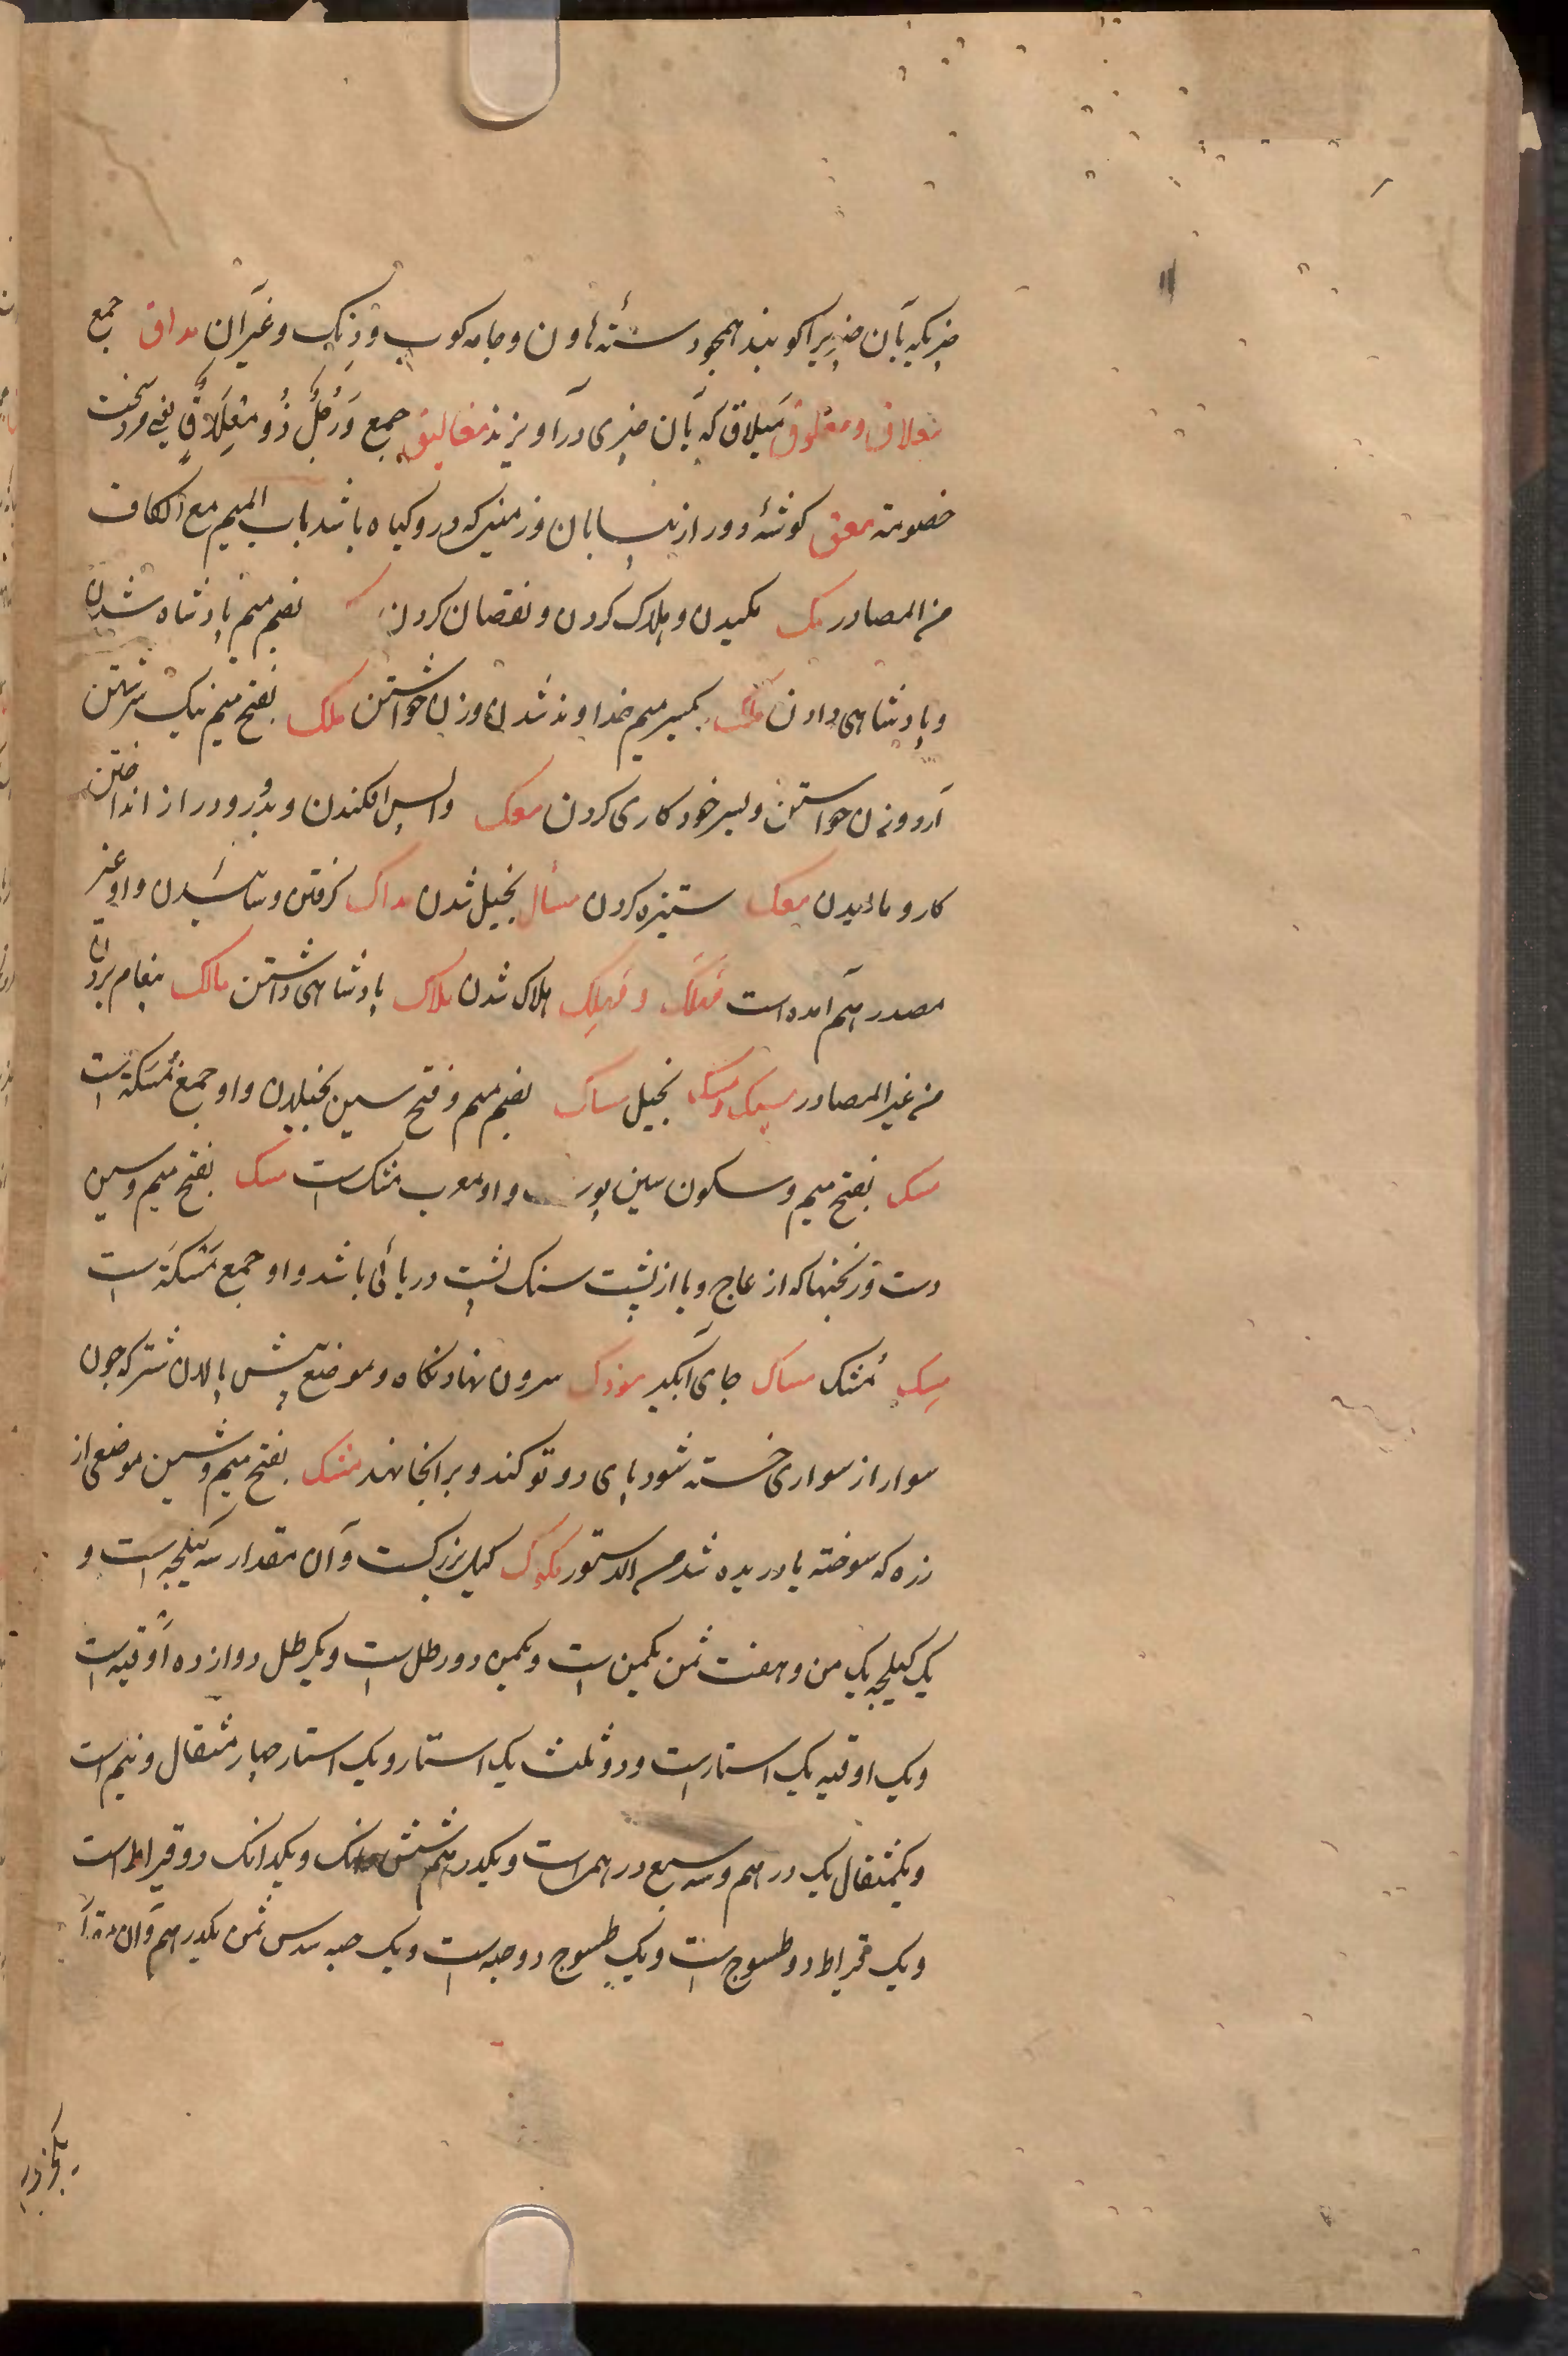 چیزیکه بآن چیزیرا کوبند همچو دستهٔ هاون و جامه کوب و زنک و غیر آن مداق جمع
معلاق و معلوق میلاق که بآن چیزی در آویزند مغالیق جمع وَرَجُلٌ ذُو مِعْلَاقٍ یعنی مرد سخت
خصومة معق کوشهٔ دور از بیابان و زمینی که درو کیاه باشد باب المیم مع الکاف
من المصادر مک مکیدن و هلاک کردن و نقصان کردن بضم میم پادشاه شدن
و پادشاهی دادن ملک بکسر میم خداوند شدن و زن خواستن ملک بفتح میم نیک سرشتن
آرد و زن خواستن و بسر خود کاری کردن معک واپس افکندن و بدور و دراز انداختن
کار و مالیدن معک ستیزه کردن مساک بخیل شدن مداک کرفتن و رسانیدن و او غیر
مصدر هم آمده است مَهلَک و مَهلِک هلاک شدن ملاک پادشاهی داشتن مالک پیغام بردن
من غیر المصادر مسیک و مسک بخیل مساک بضم میم و فتح سین بخیلان و او جمع مُسَکَة است
مسک بفتح میم و سکون سین پوست و او معرب مشک است مسک بفتح میم و سین
دست ورنجنها که از عاج و یا از پشت سنک پشت دریائی باشد و او جمع مَسَکَة است
مِسک مُشک مساک جای آبکیر مورک سرون نهادنکاه و موضع پیش پالان شتر که چون
سوار از سواری خسته شود پای دو تو کند و بر آنجا نهد مشک بفتح میم و شین موضعی از
زره که سوخته یا دریده شد من الدستور مکوک کیل بزرکست و آن مقدار سه کیلجه است و
یک کیلجه یک من و هفت ثمن یکمن است و یکمن دو رطل است و یکرطل دوازده اوقیه است
و یک اوقیه یک استار است و دو ثلث یک استار و یک استار چهار مثقال و نیم است
و یکمثقال یک درهم و سه سبع درهم است و یکدرهم شش دانک و یکدانک دو قیراط است
و یک قیراط دو طسوج است و یک طسوج دو حبه است و یک حبه سدس ثمن یکدرهم و آن